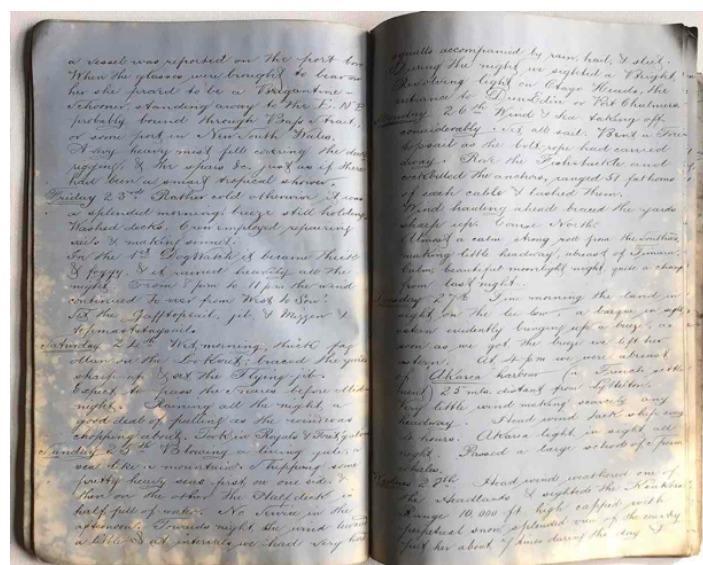 a vessel was reported on the port bow
When the glasses were brought to bear on
her she proved to be a Brigantine-
Schooner, standing away to the E. N E
probably bound through Bass Strait,
or some port in New South Wales.
A very heavy mist fell covering the deck
rigging, & the spars &c. just as if there
had been a smart tropical shower.
Friday 23rd Rather cold otherwise it was
a splendid morning, breeze still holding
Washed decks. Crew employed repairing
sails & making sennet.
In the 1st DogWatch it became thick
& foggy. & it rained heavily all the
night. From 8 pm to 11 pm the wind
continued to veer from West to Sou'
Set the Gafftopsail, jib, & Mizzen &
topmaststaysails.
Saturday 24th Wet morning, thick fog
Man on the Lookout; braced the yards
sharp up & set the Flying jib.
Expect to pass the Snares before Mid-
night. Raining all the night, a
good deal of pulling as the wind was
chopping about. Took in Royals &
Sunday 25th Blowing a living gale, a
sea like a mountain. Shipping some
pretty heavy seas first on one side &
then on the other the Half deck is
half full of water. No Service in the
afternoon. Towards night, the wind
a little & at intervals we had very
squalls accompanied by rain, hail, & sleet.
During the night we sighted a Bright,
Revolving light on Otago Heads, the
entrance to DunEdin or Port Chalmers
Monday 26th Wind & Sea taking off
considerably. Set all sail. Bent a Fore
topsail as the bolt rope had carried
away. Rove the Fishtackle and
cockbilled the anchors, ranged 51 fathoms
of each cable & lashed them.
Wind hauling ahead braced the yards
sharp up. Course North.
Almost a calm strong roll from the Southard
making little headway, abreast of Timaru.
Calm beautiful moonlight night, quite a change
from last night.
Tuesday 27th Fine morning the land in
sight on the lee bow, a barque in sight
astern evidently bringing up a breeze, as
soon as we got the breeze we left her
astern. At 4 pm we were abreast
of Akaroa harbour (a French settle
ment) 25 mls. distant from Lyttelton.
Very little wind making scarcely any
headway. Head wind tack ship every
4 hours. Akaroa light in sight all
night. Passed a large school of
whales.
28th Head wind weathered one of
the Headlands & sighted the Kaikora
Range 10,000 ft. high capped with
perpetual snow, splendid view of the country
put her about 7 times during the day &